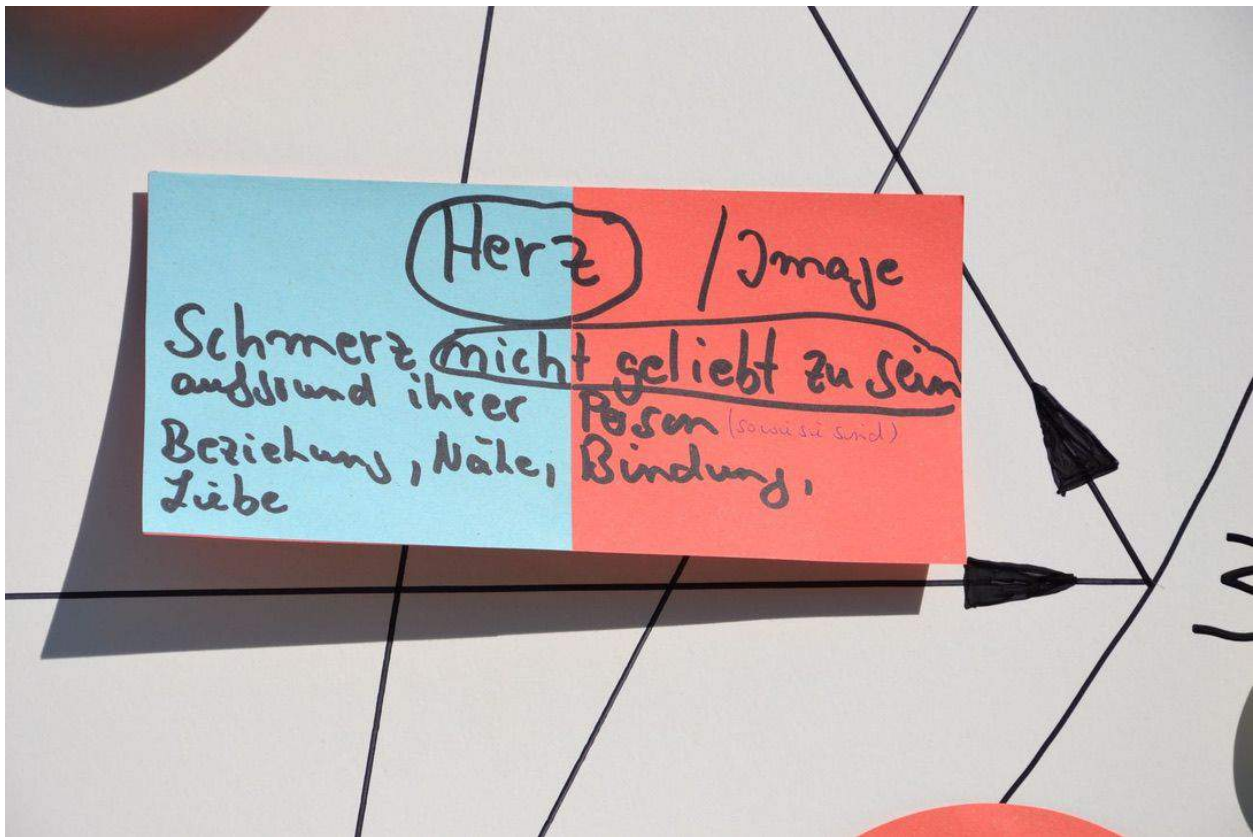 Herz / Image
Schmerz nicht geliebt zu sein
aufgrund ihrer Person (so wie sie sind)
Beziehung, Nähe, Bindung,
Liebe